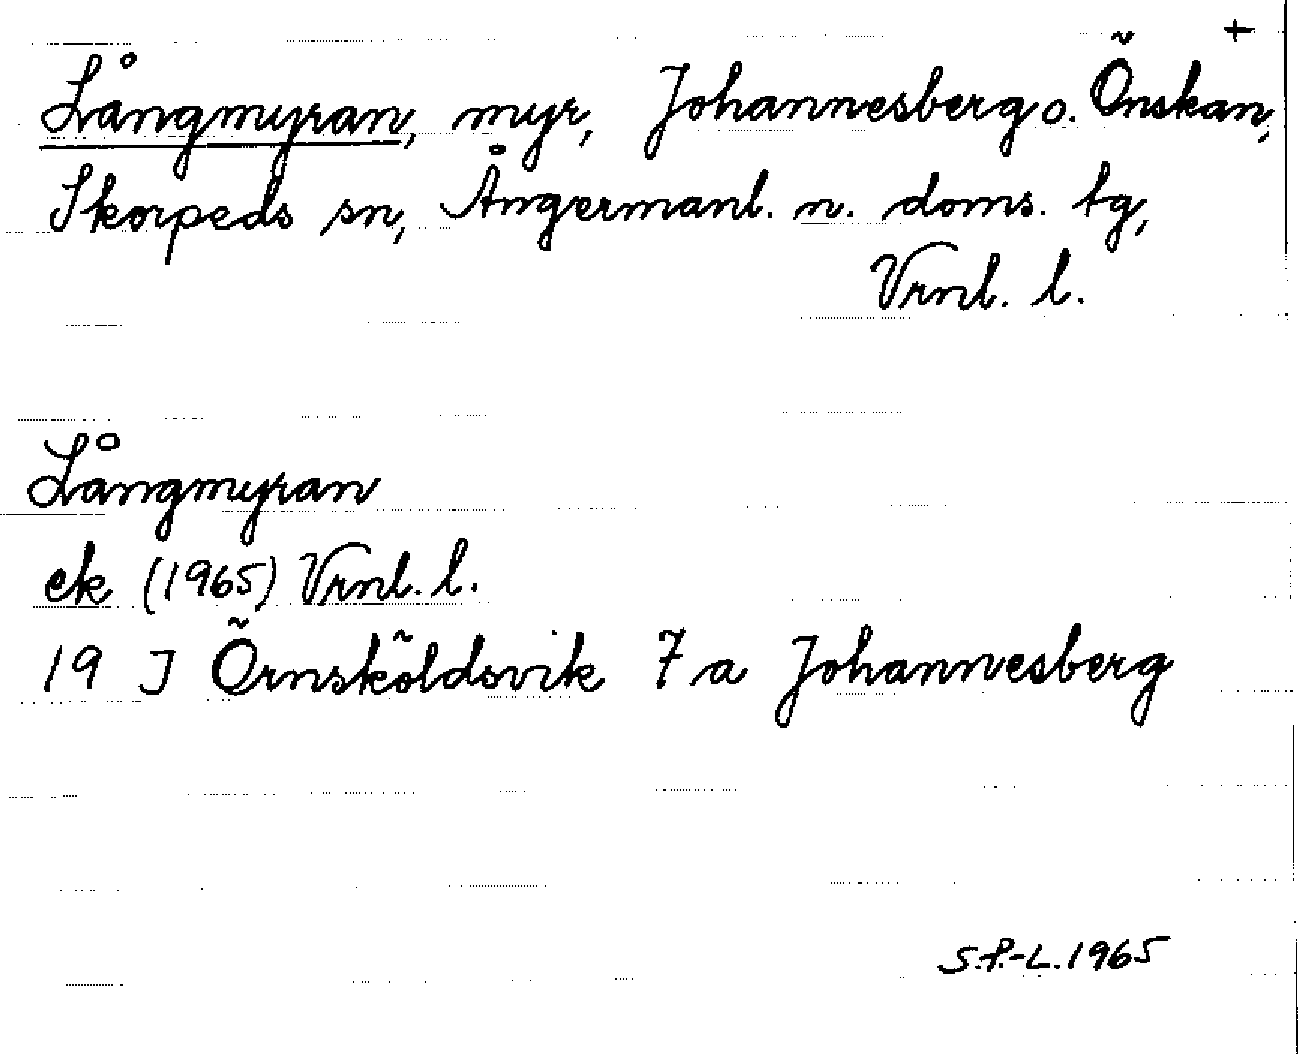 +
Långmyran, myr, Johannesberg o. Önskan,
Skorpeds sn, Ångermanl. n. doms. tg,
Vrnl. l.
Långmyran
ek (1965) Vrnl. l.
19 J Örnsköldsvik 7 a Johannesberg
S.P.-L. 1965